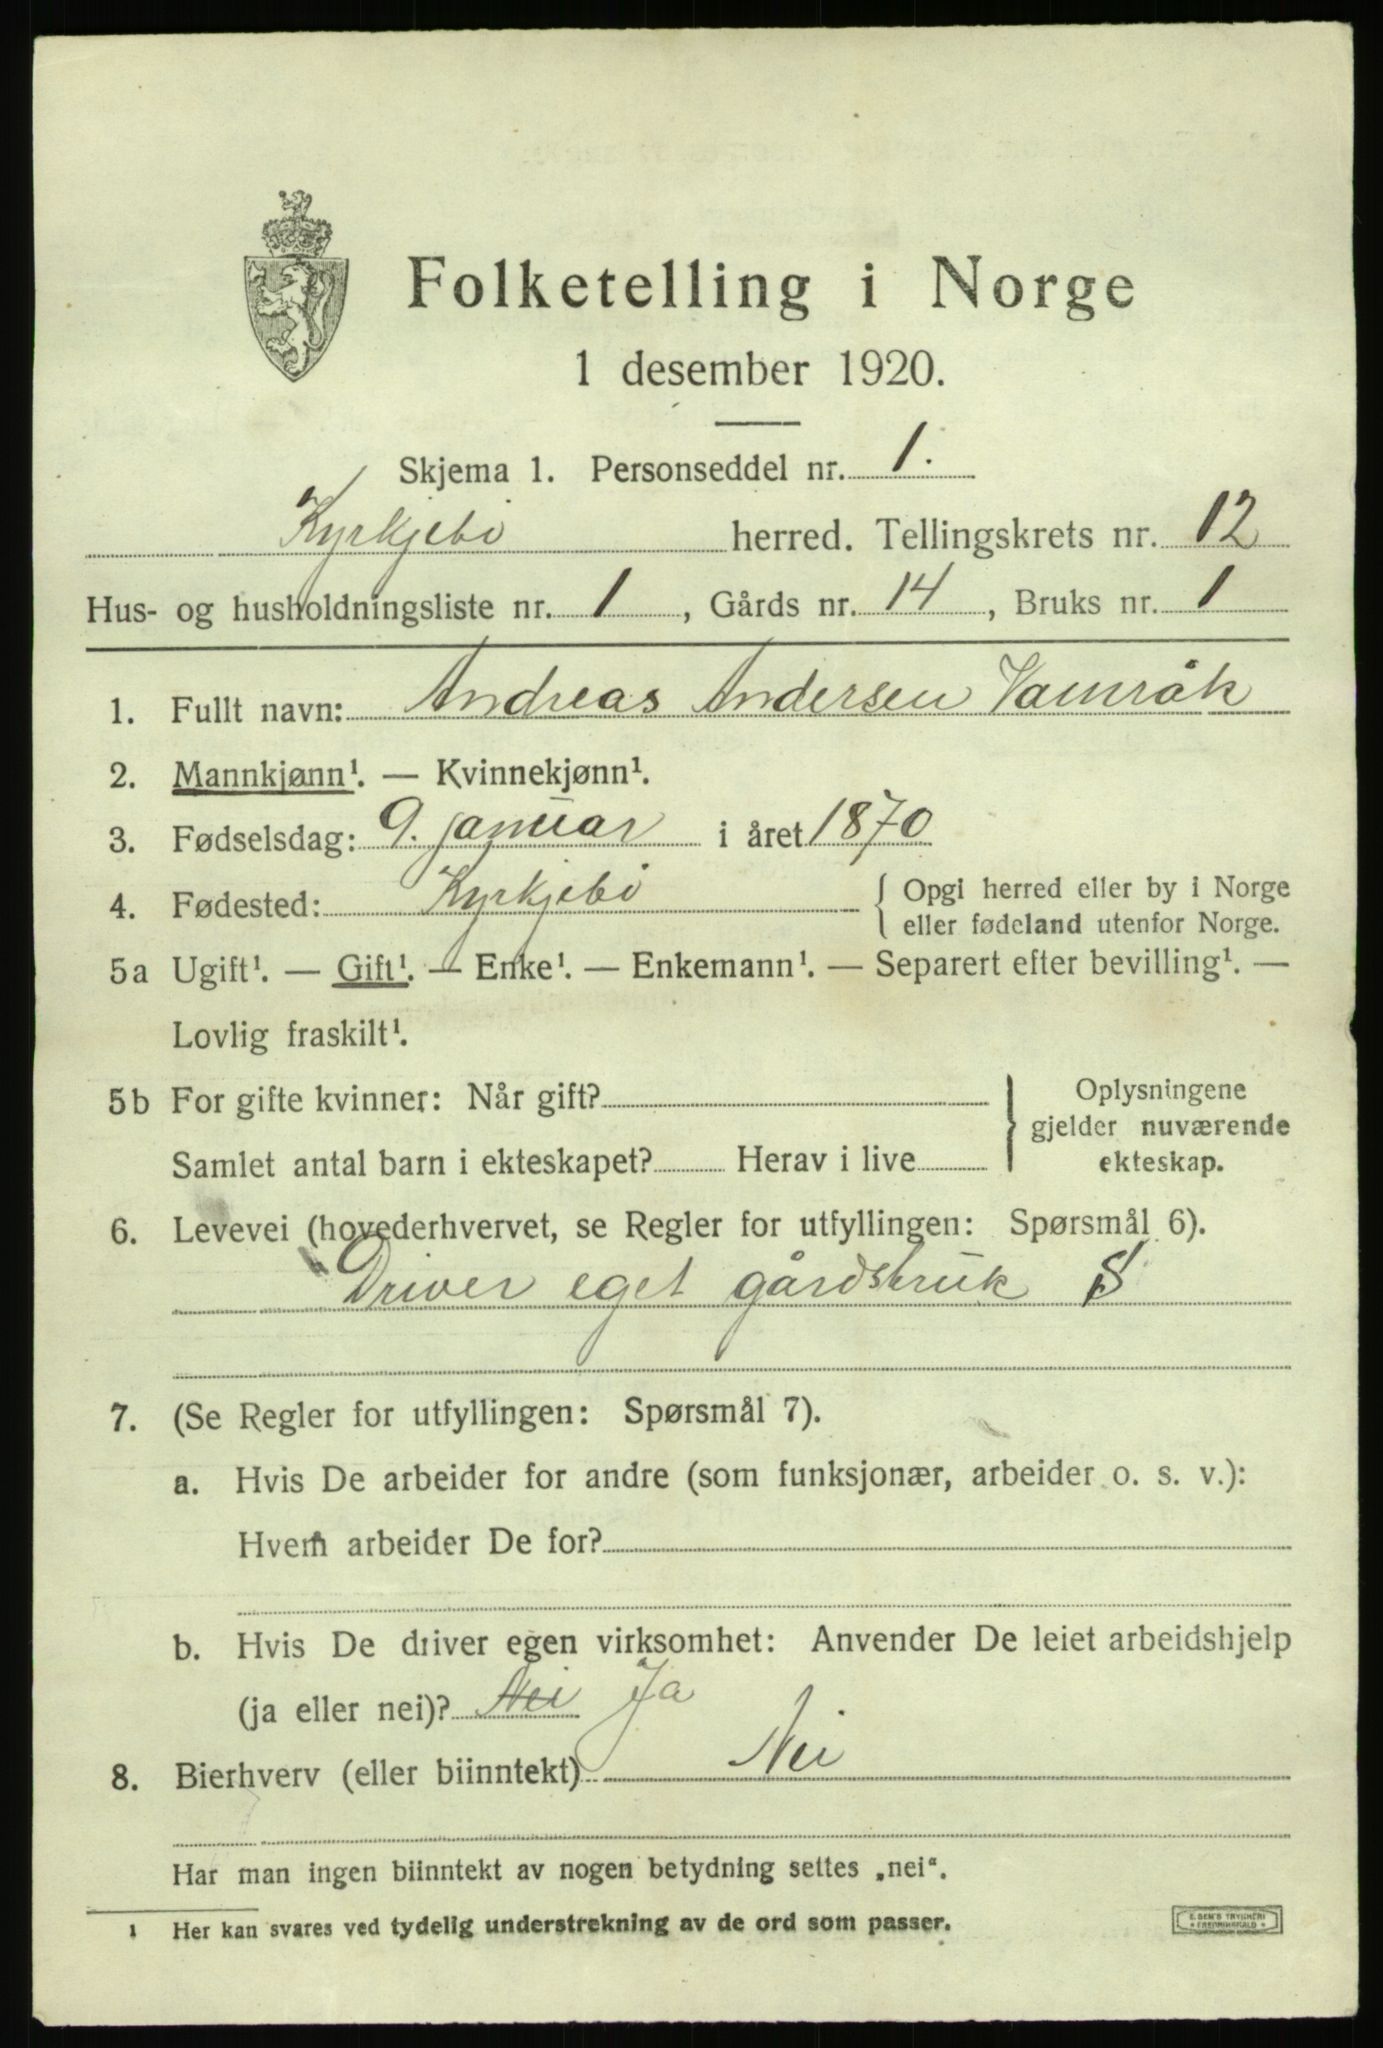 Folketelling i Norge
1 desember 1920.
Skjema 1. Personseddel nr. 1.
Kyrkjebö herred. Tellingskrets nr. 12
Hus- og husholdningsliste nr. 1, Gårds nr. 14, Bruks nr. 1
1. Fullt navn: Andreas Andersen Vamråk
2. Mannkjønn¹. — Kvinnekjønn¹.
3. Fødselsdag: 9. januar i året 1870
4. Fødested: Kyrkjebö { Opgi herred eller by i Norge
eller fødeland utenfor Norge.
5a Ugift¹. — Gift¹. — Enke¹. — Enkemann¹. — Separert efter bevilling¹. —
Lovlig fraskilt¹.
5b For gifte kvinner: Når gift?
Samlet antal barn i ekteskapet? Herav i live
} Oplysningene
gjelder nuværende
ekteskap.
6. Levevei (hovederhvervet, se Regler for utfyllingen: Spørsmål 6).
Driver eget gårdsbruk S
7. (Se Regler for utfyllingen: Spørsmål 7).
a. Hvis De arbeider for andre (som funksjonær, arbeider o. s. v.):
Hvem arbeider De for?
b. Hvis De driver egen virksomhet: Anvender De leiet arbeidshjelp
(ja eller nei)? Nei Ja
8. Bierhverv (eller biinntekt) Nei
Har man ingen biinntekt av nogen betydning settes „nei“.
1 Her kan svares ved tydelig understrekning av de ord som passer.
E. SEM'S TRYKKERI
FREDRIKSHALD